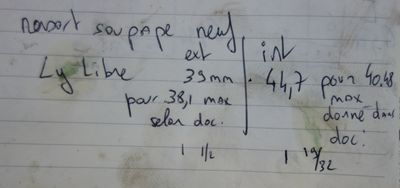 ressort soupape neuf
ext | int
Lg libre 39mm . 44,7 pour 40.48
pour 38,1 max | max
selon doc. | donné dans
doc.
1 1/2 1 19/32